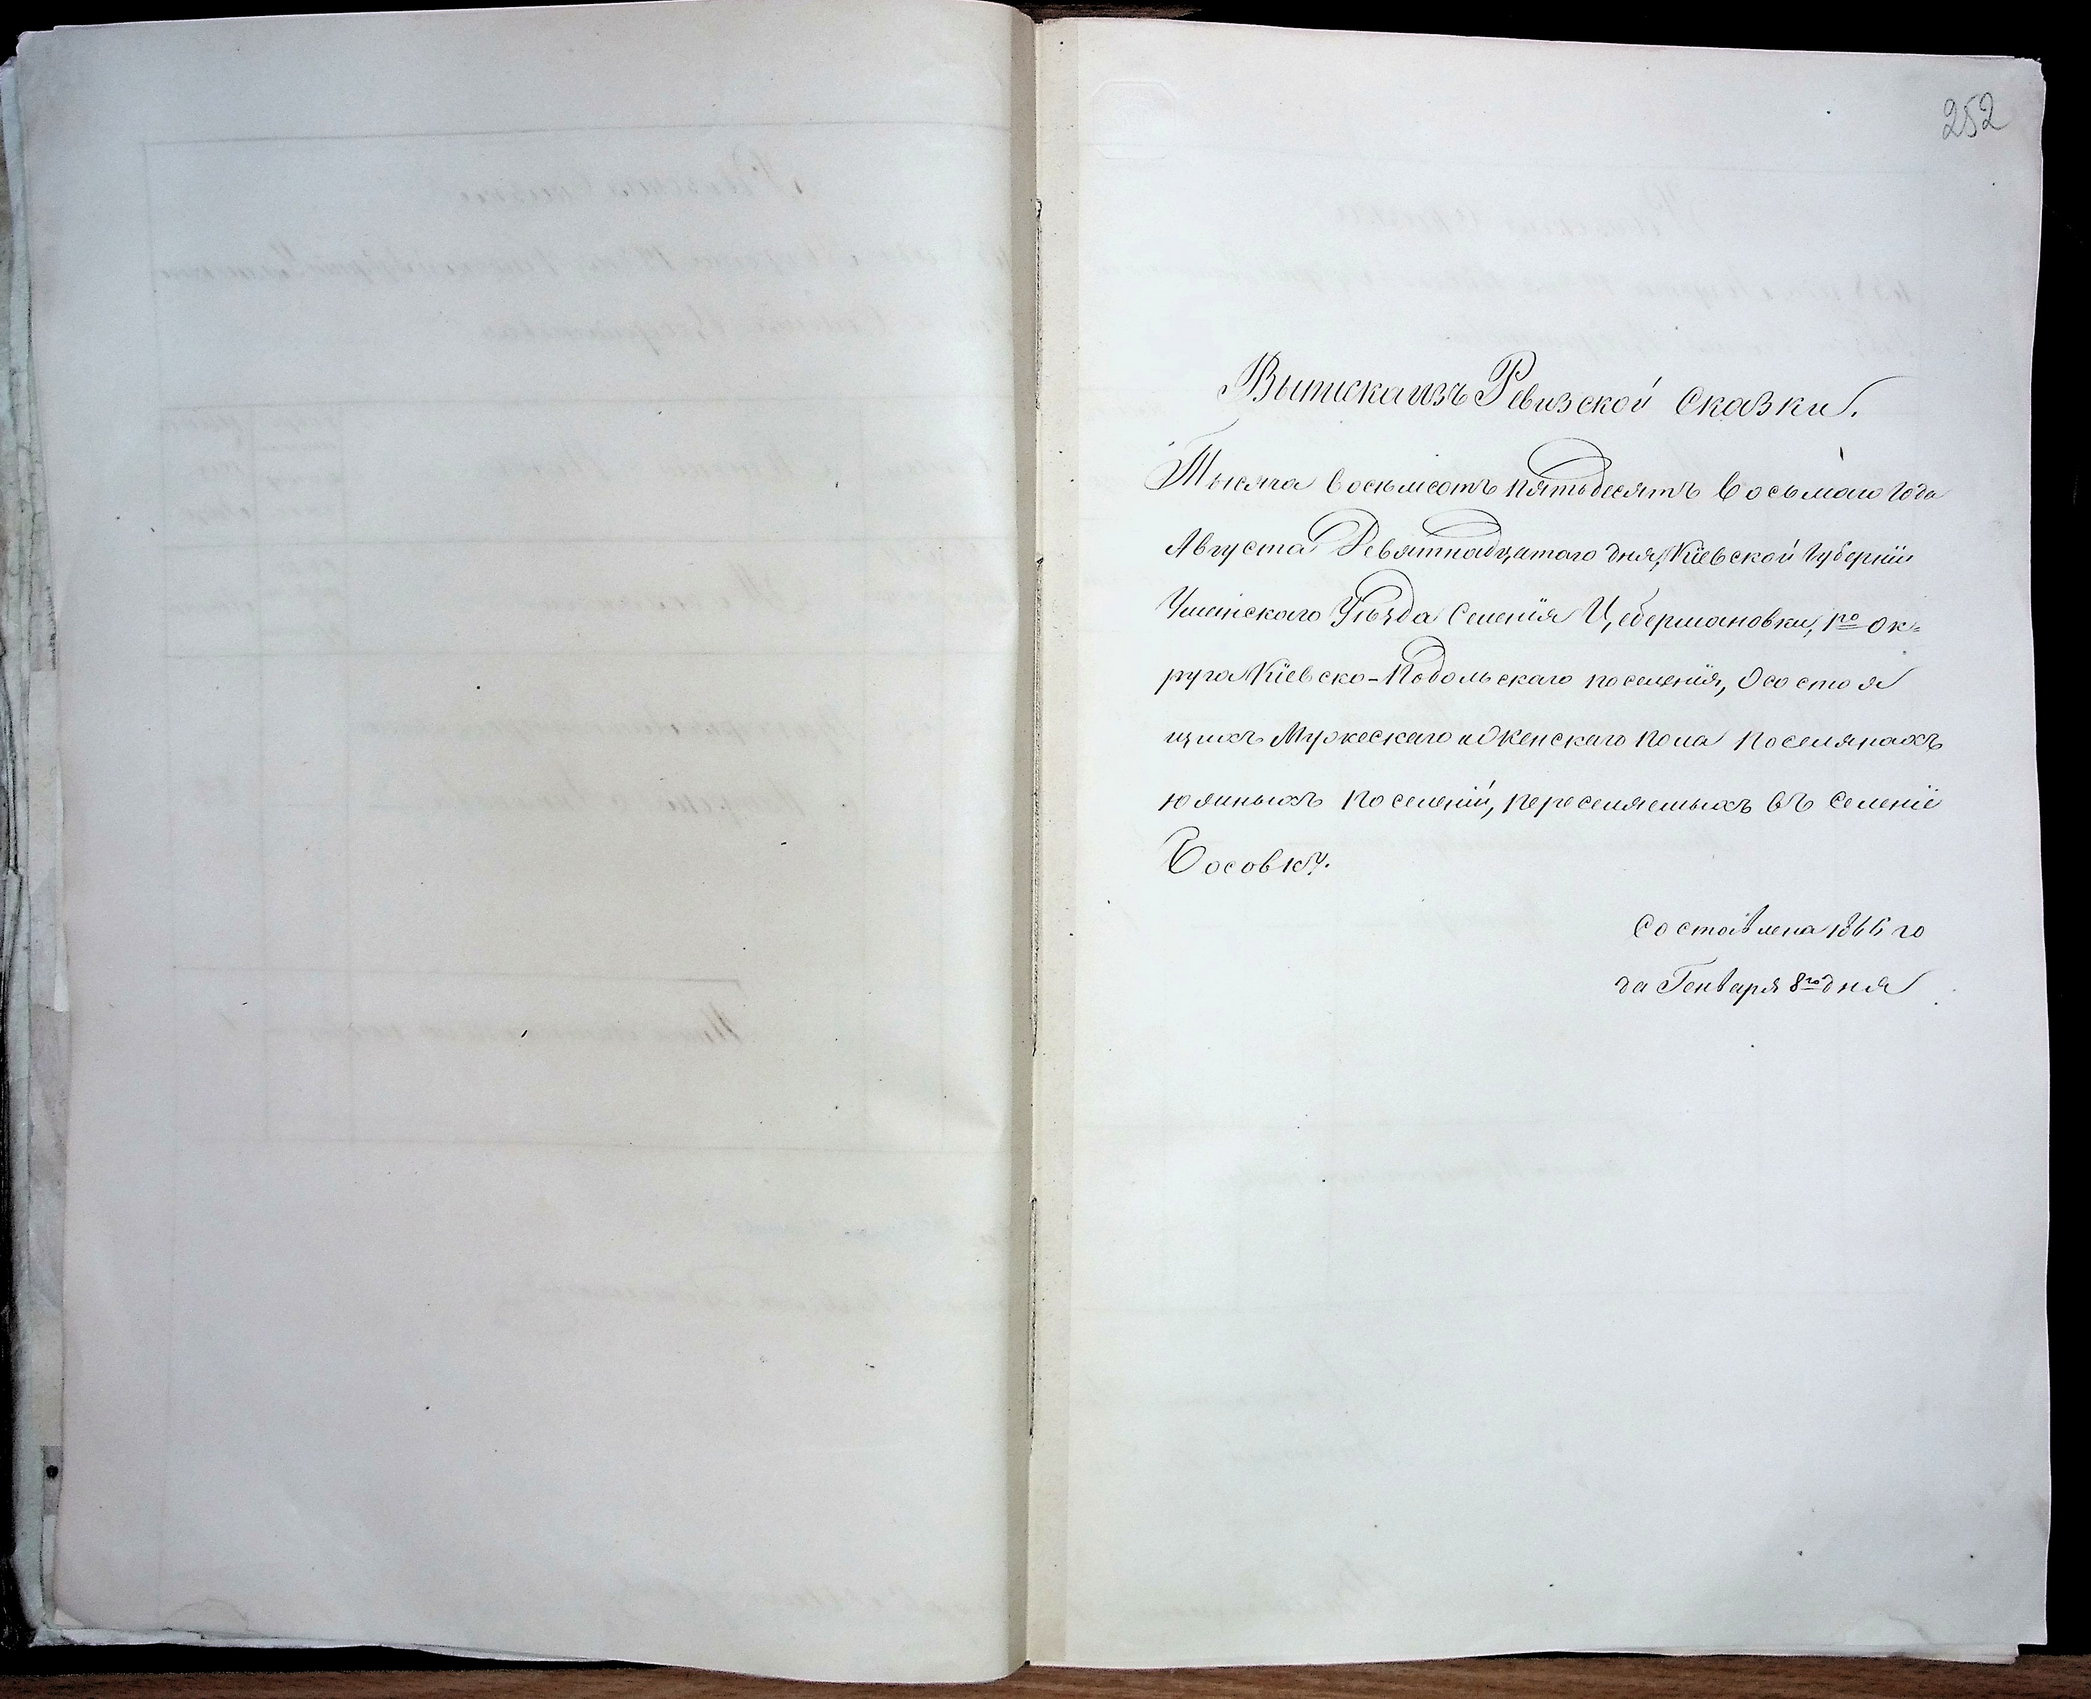 252
Выписка изъ Ревизской Сказки.
Тысяча восемьсотъ пятьдесятъ восьмаго года
Августа Девятнадцатаго дня, Кіевской Губерніи
Уманскаго Уѣзда Селенія Цебермановки, 1го Ок=
руга Кіевско-Подольскаго поселенія, О состоя
щихъ Мужескаго и Женскаго пола поселянахъ
южныхъ поселеній, переселяемыхъ въ селеніе
Босовку.
Составлена 1866 го
да Генваря 8го дня